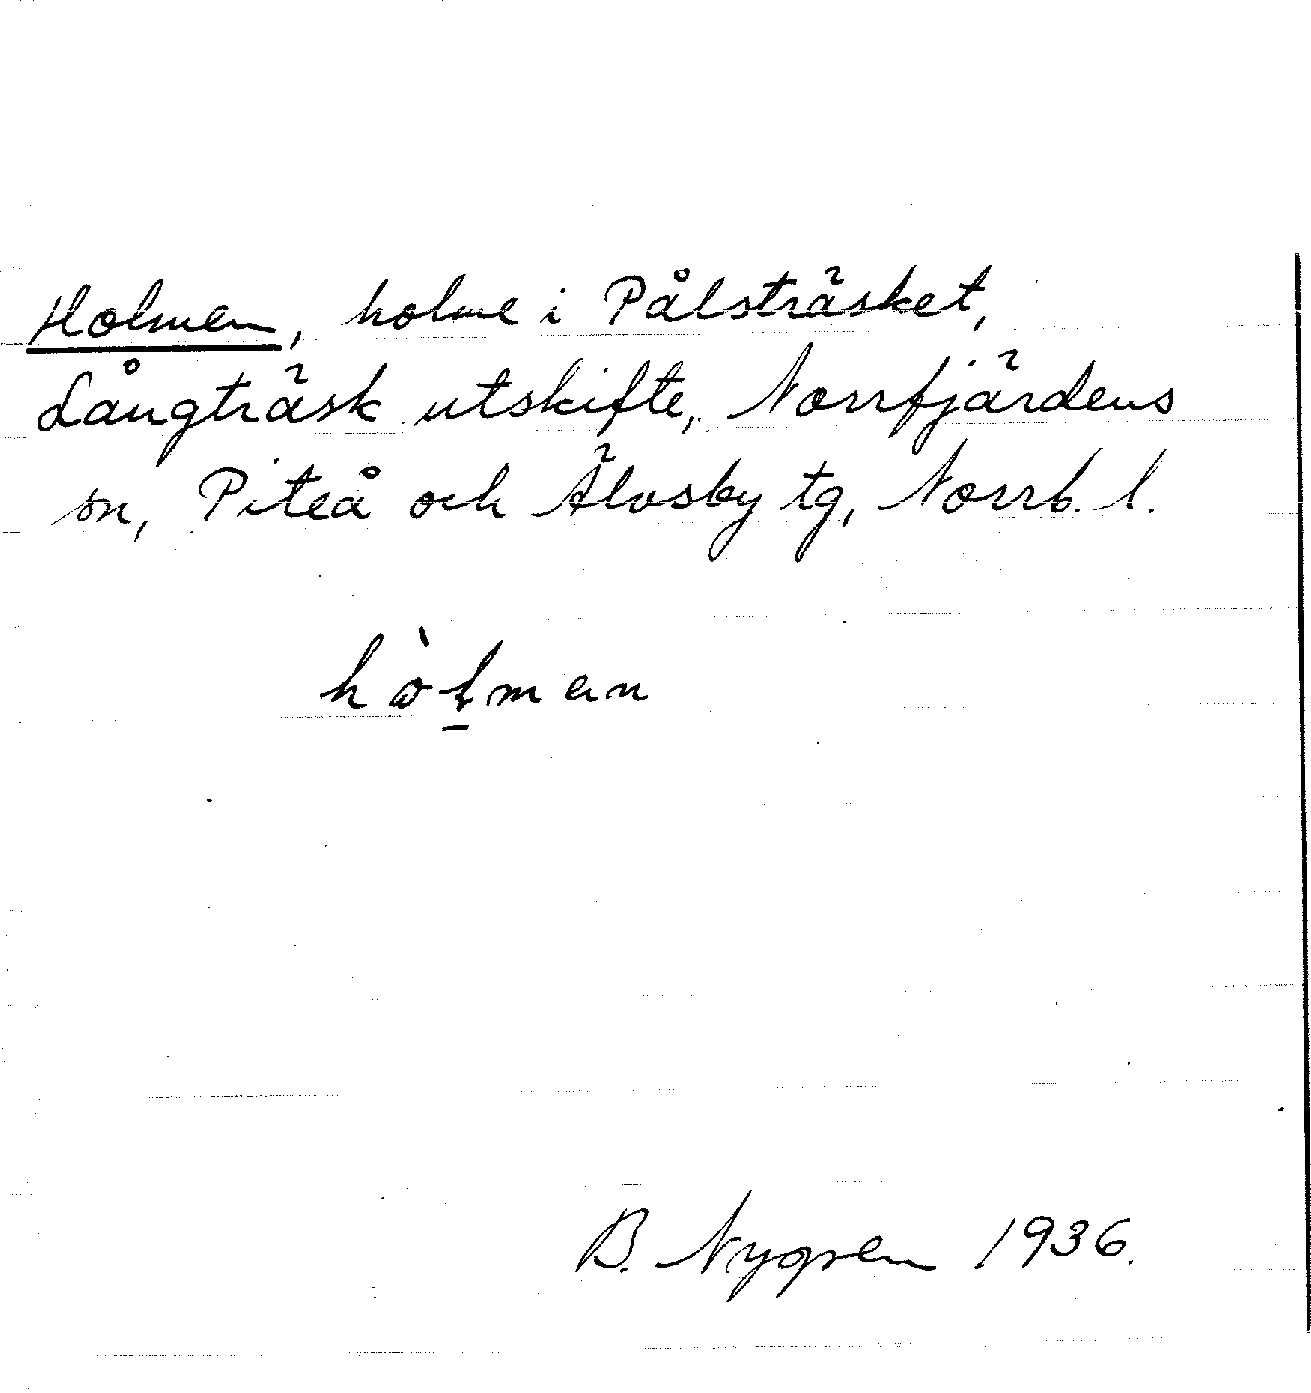 Holmen, holme i Pålsträsket,
Långträsk utskifte, Norrfjärdens
sn, Piteå och Älvsby tg, Norrb. l.
hòl̠man
B. Nygren 1936.